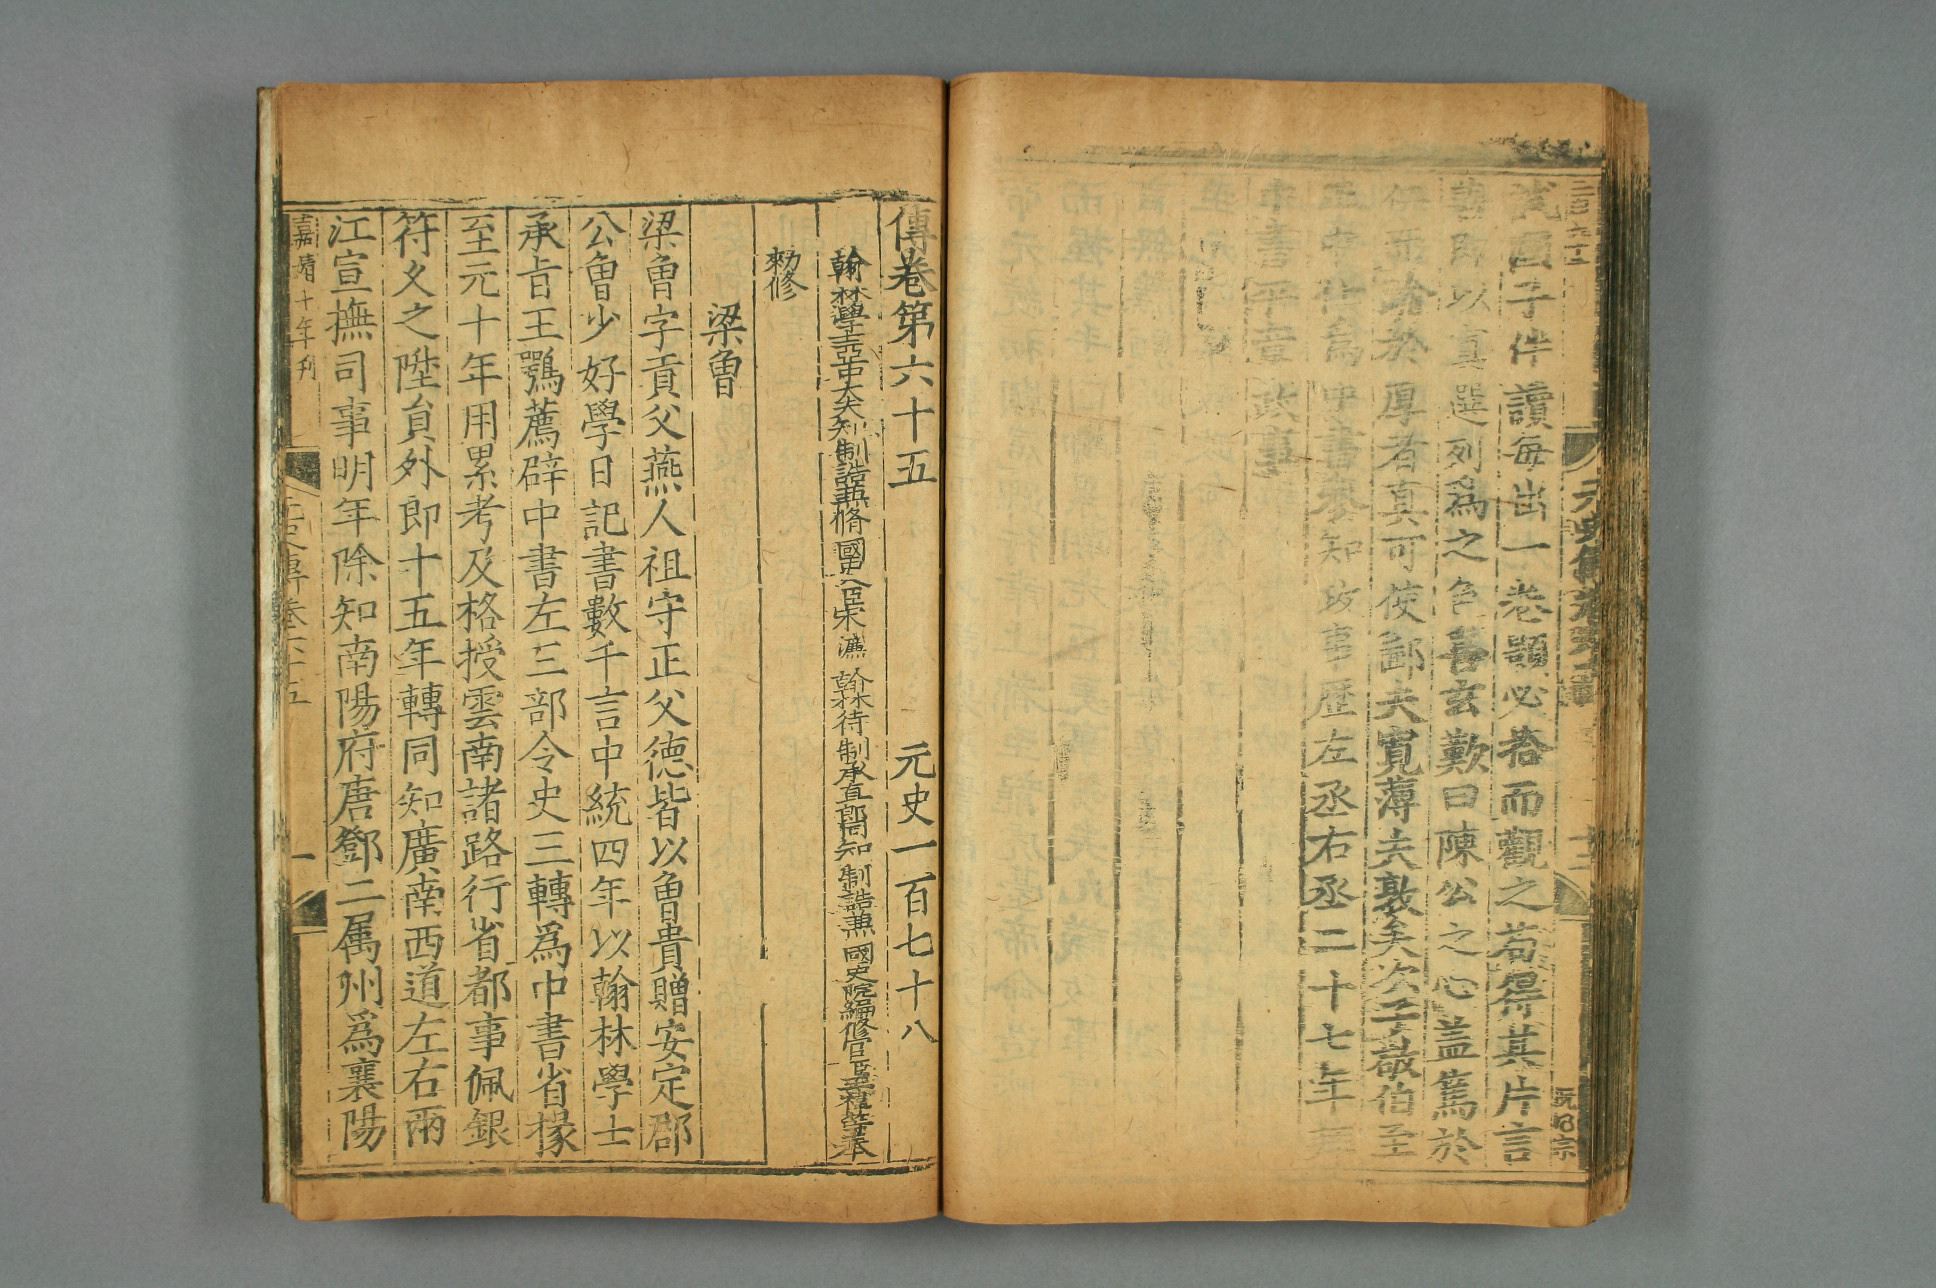 子伴讀每出一卷顥必拾而觀之苟得其片言
善即以真選列爲之色喜玄歎曰陳公之心蓋篤於
於厚者真可使鄙夫寬薄夫敦矣次子敬伯至
正中仕爲中書參知政事歷左丞右丞二十七年拜
中書平章政事
傳卷第六十五 元史一百七十八
翰林學士亞中大夫知制誥兼修國史臣宋濂 翰林待制承直郎同知制誥兼國史院編修官臣王禕等奉
勑修
梁魯
梁魯字貢父燕人祖守正父德皆以魯貴贈安定郡
公魯少好學日記書數千言中統四年以翰林學士
承旨王鶚薦辟中書左三部令史三轉爲中書省掾
至元十年用累考及格授雲南諸路行省都事佩銀
符久之陞貟外郎十五年轉同知廣南西道左右兩
江宣撫司事明年除知南陽府唐鄧二属州爲襄陽
嘉靖十年刊
元史傳卷六十五 一